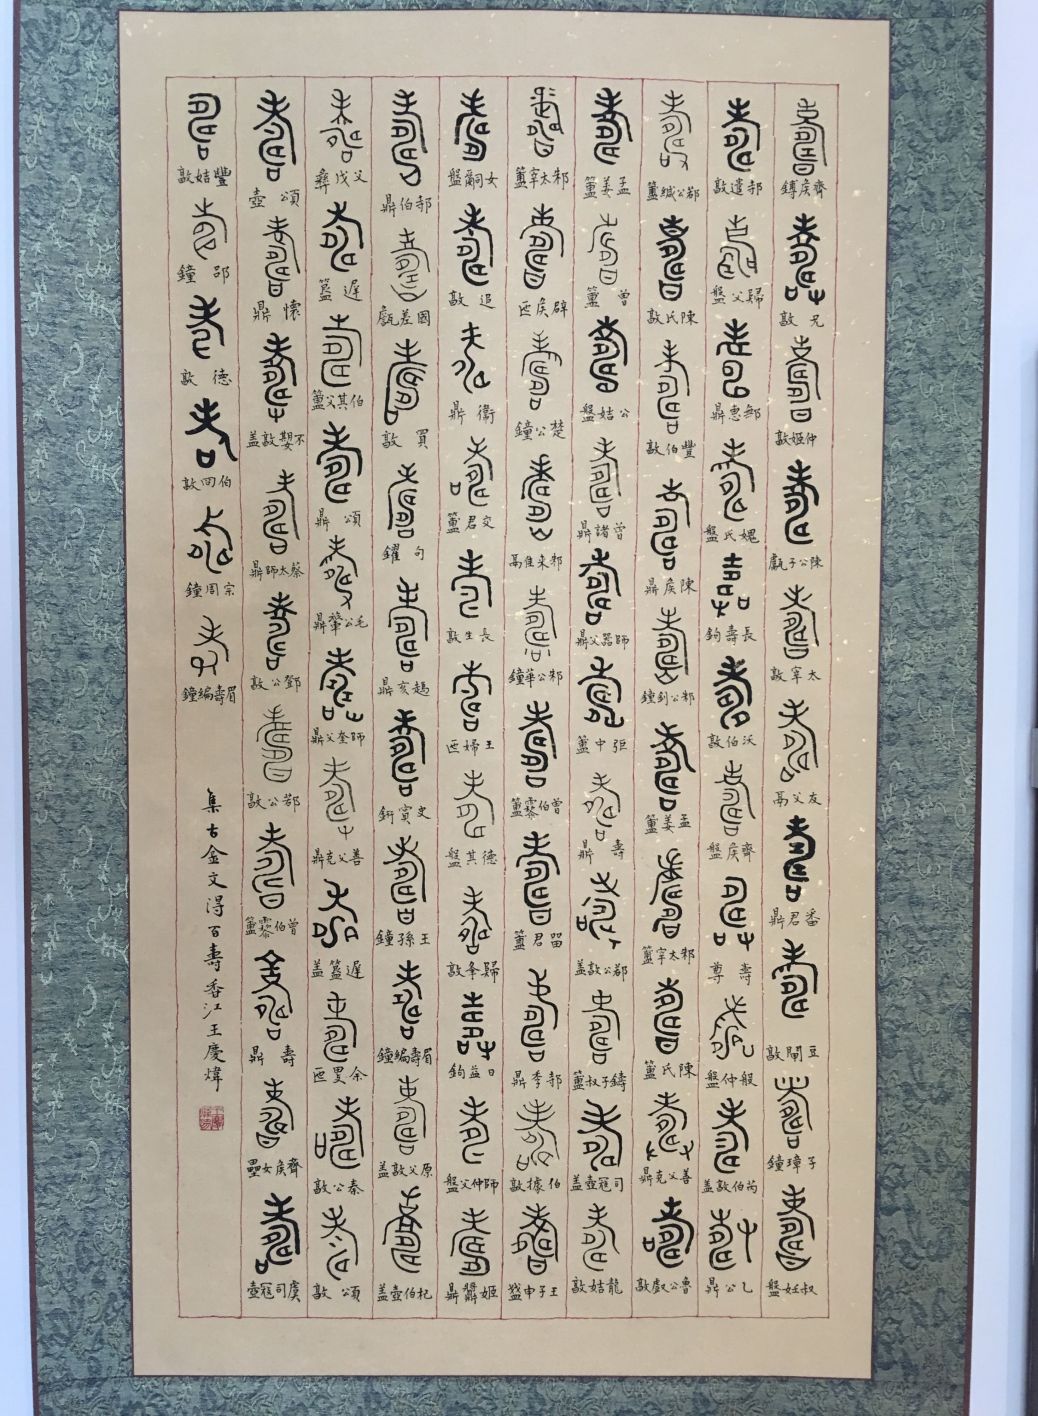 壽 齊矦鎛 壽 兄敦 壽 仲姬敦 壽 陳公子甗 壽 太宰敦 壽 友父鬲 壽 番君鼎 壽 豆閉敦 壽 子璋鐘 壽 叔妊盤
壽 郜遣敦 壽 歸父盤 壽 鄦惠鼎 壽 媿氏盤 壽 長壽鉤 壽 沃伯敦 壽 齊矦盤 壽 壽尊 壽 般仲盤 壽 芮伯敦盖 壽 乙公鼎
壽 邾公緘簠 壽 陳氏敦 壽 豐伯敦 壽 陳矦鼎 壽 邾公釗鐘 壽 孟姜簠 壽 邾太宰簠 壽 陳氏簠 壽 善父克鼎 壽 魯公戲敦
壽 孟姜簠 壽 曾簠 壽 公姞盤 壽 曾諸鼎 壽 師器父鼎 壽 弡中簠 壽 壽鼎 壽 鄀公敦盖 壽 鑄子叔簠 壽 司寇壺盖 壽 龍姞敦
壽 邾太宰簠 壽 辟矦匜 壽 楚公鐘 壽 邾来隹鬲 壽 邾公華鐘 壽 曾伯霥簠 壽 留君簠 壽 郜季鼎 壽 伯據敦 壽 王子申盞
壽 女嗣盤 壽 追敦 壽 衛鼎 壽 交君簠 壽 長生敦 壽 王婦匜 壽 德其盤 壽 歸夆敦 壽 日益鉤 壽 師仲父盤 壽 姬鼎
壽 郜伯鼎 壽 國差甔 壽 買敦 壽 句鑃 壽 亥鼎 壽 文賓鈃 壽 王孫鐘 壽 眉壽編鐘 壽 原父敦盖 壽 杞伯壺盖
壽 父戊彝 壽 遲簋 壽 伯其父簠 壽 頌鼎 壽 毛公肇鼎 壽 師奎父鼎 壽 善父克鼎 壽 遲簋盖 壽 余匜 壽 秦公敦 壽 頌敦
壽 頌壺 壽 懷鼎 壽 不嬰敦盖 壽 蔡太師鼎 壽 鄧公敦 壽 鄀公敦 壽 曾伯霥簠 壽 壽鼎 壽 齊矦女罍 壽 虞司寇壺
壽 豐姞敦 壽 郘鐘 壽 德敦 壽 伯回敦 壽 宗周鐘 壽 眉壽編鐘
集古金文得百壽香江王慶煒